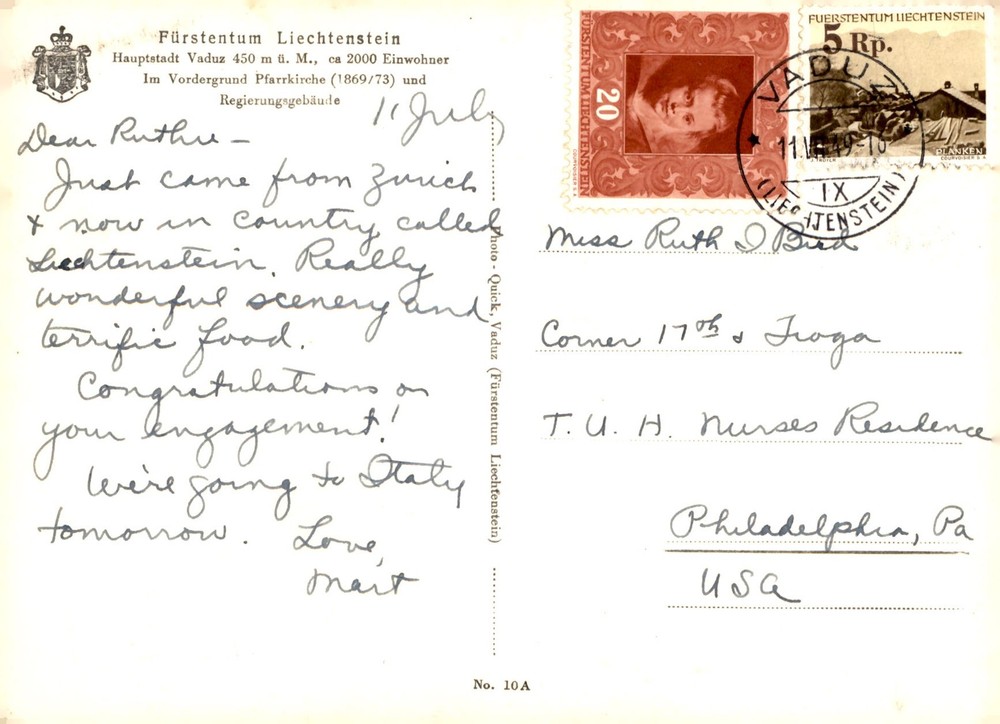 Fürstentum Liechtenstein
Hauptstadt Vaduz 450 m ü. M., ca 2000 Einwohner
Im Vordergrund Pfarrkirche (1869/73) und
Regierungsgebäude
11 July
Dear Ruthie –
Just came from Zurich
& now in country called
Liechtenstein. Really
wonderful scenery and
terrific food.
Congratulations on
your engagement!
We're going to Italy
tomorrow.
Love,
Mart
Photo - Quick, Vaduz (Fürstentum Liechtenstein)
No. 10A
FÜRSTENTUM LIECHTENSTEIN
20
FÜRSTENTUM LIECHTENSTEIN
FUERSTENTUM LIECHTENSTEIN
5 Rp.
PLANKEN
COURVOISIER S.A.
VADUZ
11.VII.49-18
IX
(LIECHTENSTEIN)
Miss Ruth I Bied
Corner 17th & Tioga
T. U. H. Nurses Residence
Philadelphia, Pa
USA